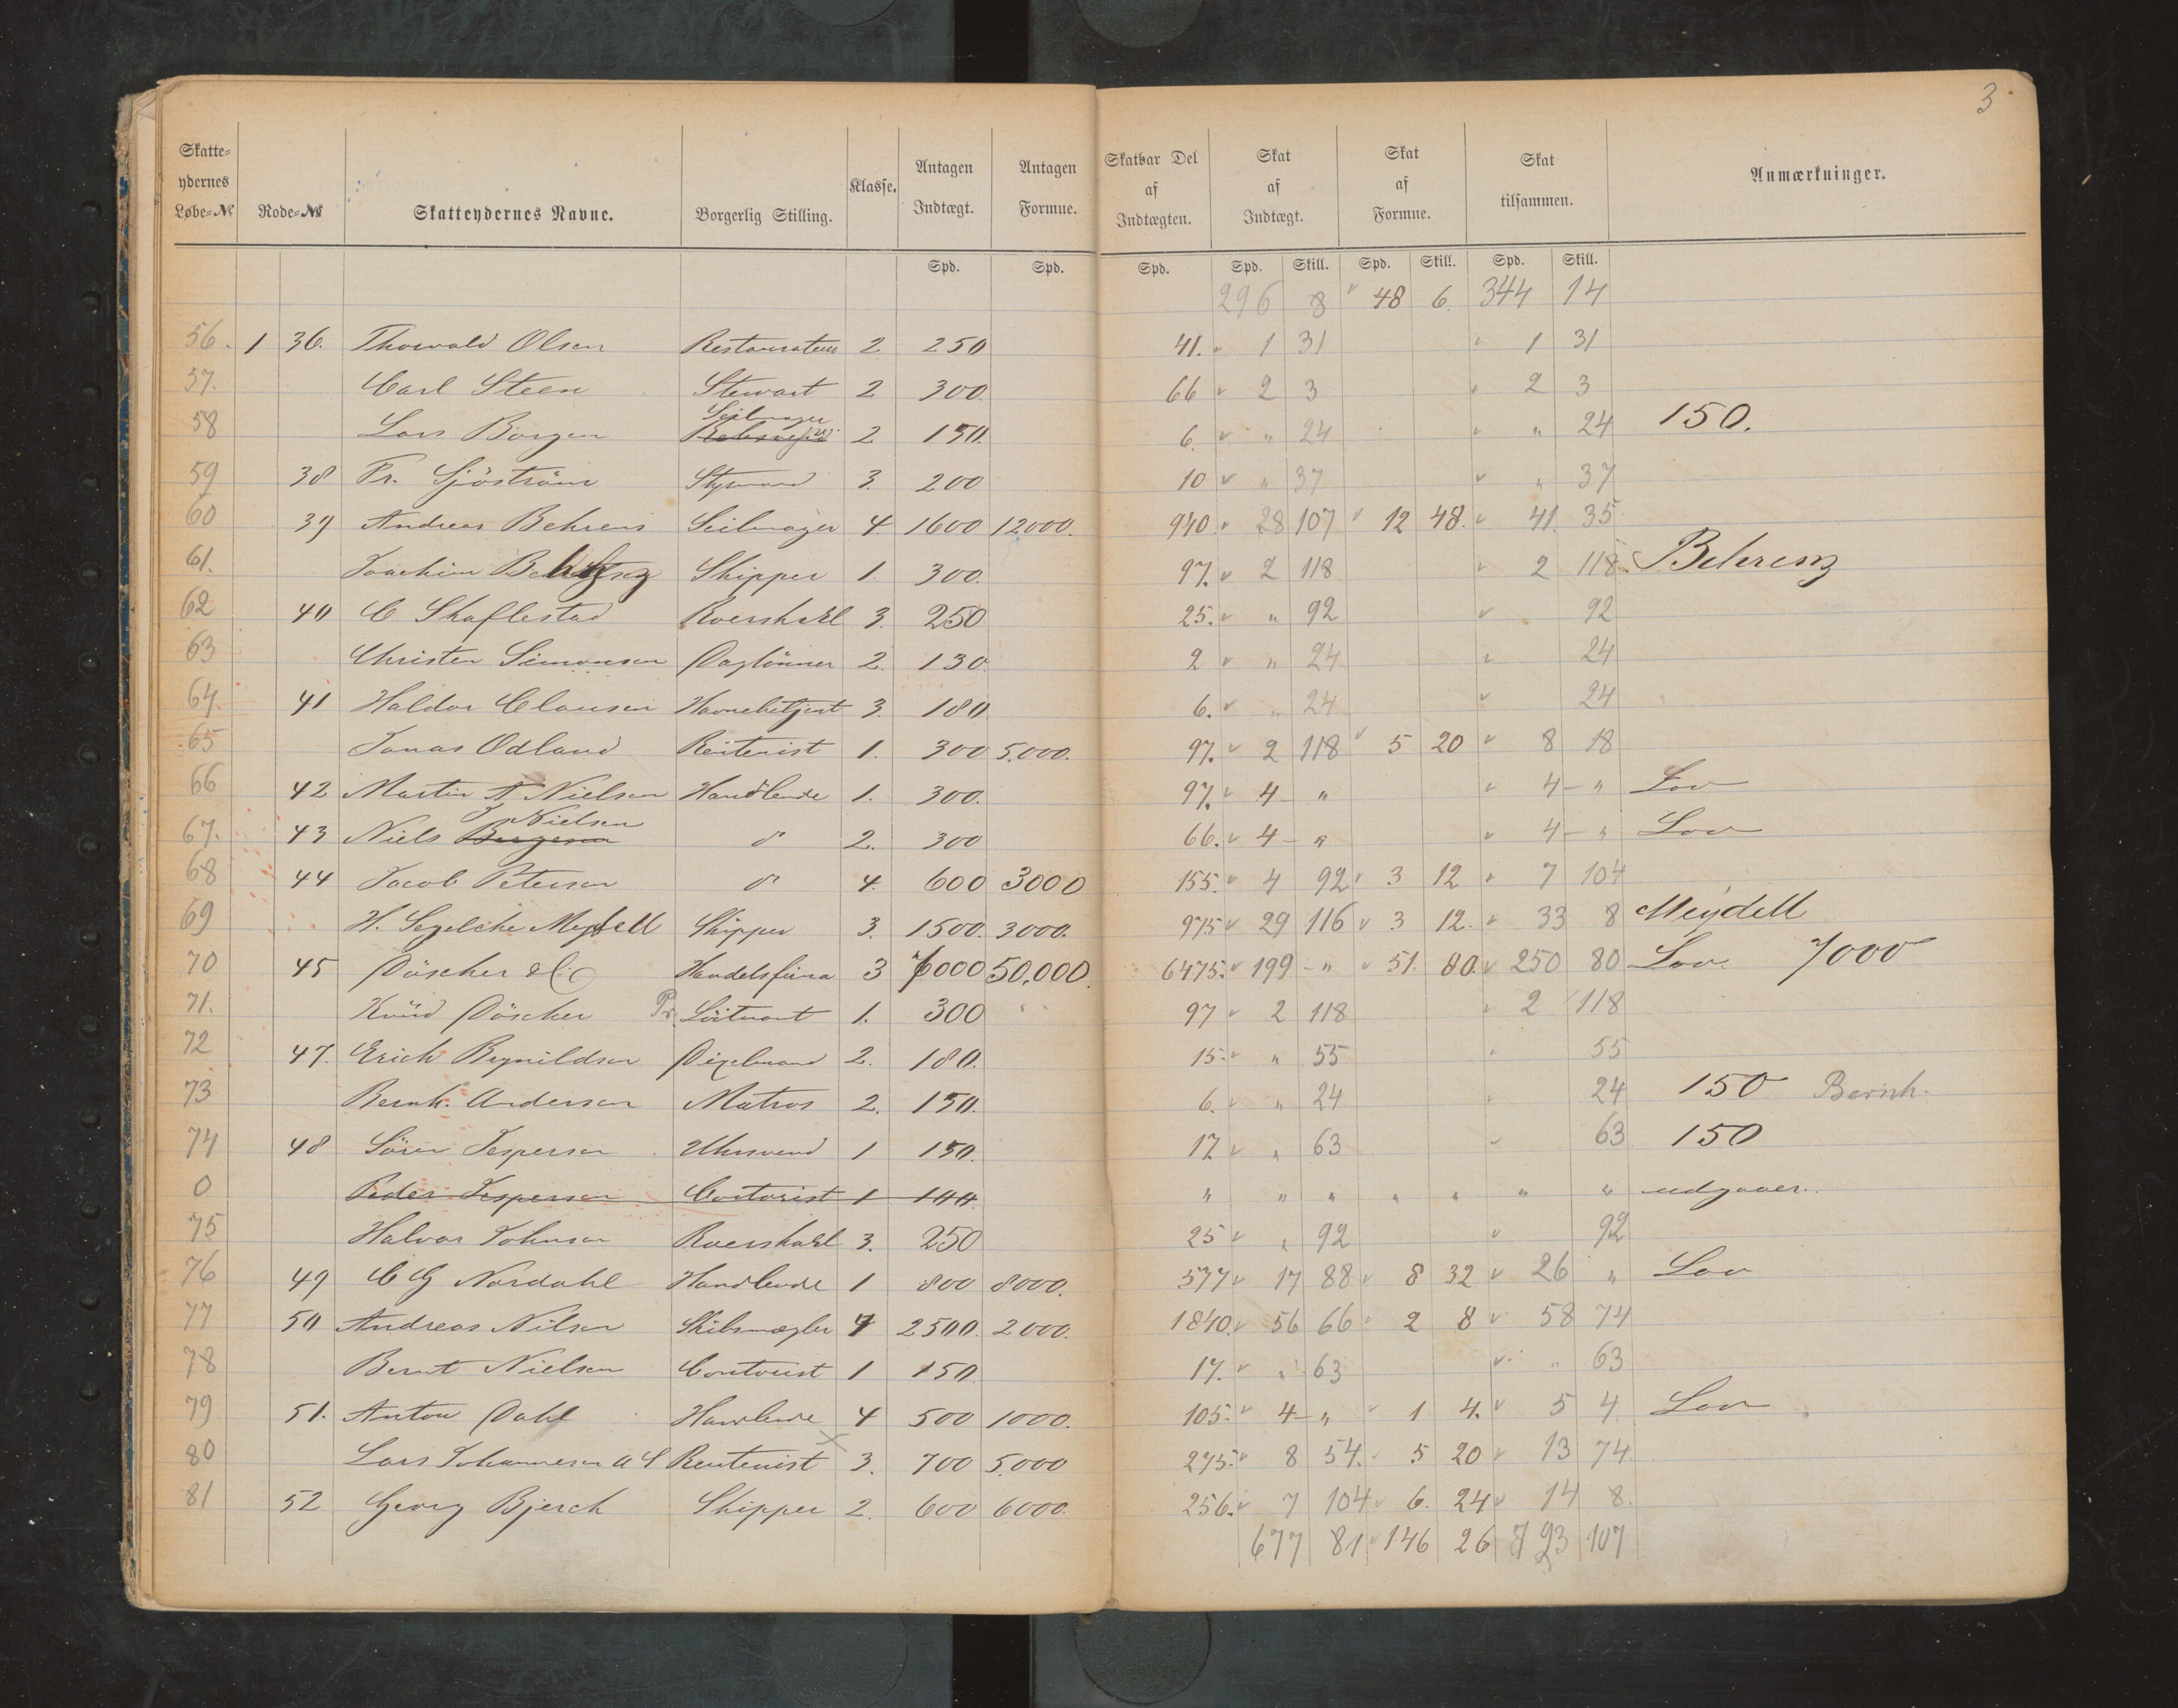 3
Skatte-ydernes Løbe-№ Rode-№ Skatteydernes Navne. Borgerlig Stilling. Klasse. Antagen Indtægt. Antagen Formue. Skatbar Del af Indtægten. Skat af Indtægt. Skat af Formue. Skat tilsammen. Anmærkninger.
Spd. Spd. Spd. Spd. Skill. Spd. Skill. Spd. Skill.
296 8 48 6. 344 14
56. 1 36. Thorvald Olsen Restaurateur 2 250 41. 1 31 1 31
57. Carl Steen Stewart 2 300. 66 2 3 2 3
58 Lars Borgen Seilmager 2 150. 6. " 24 " 24 150.
59 38 Fr. Sjöström Styrmand 3. 200 10 " 37 " 37
60 39 Andreas Behrens Seilmager 4. 1600 12000. 940. 28 107 12 48. 41. 35
61. Joachim Behrens Skipper 1. 300. 97. 2 118 2 118 Behrens
62 40 C Skaflestad Roerskarl 3. 250 25. " 92 92
63 Christen Simonsen Daglönner 2. 130. 2 " 24 24
64. 41 Haldor Clausen Havnebetjent 3. 180 6. " 24 24
65 Jonas Odland Rentenist 1. 300 5.000. 97. 2 118 5 20 8 18
66 42 Martin A Nielsen Handlende 1. 300. 97. 4 - " 4 - " Lov
67. 43 Niels J Nielsen do 2. 300 66. 4 - " 4 - " Lov
68 44 Jacob Petersen do 4. 600 3000 155. 4 92 3 12 7 104
69 H. Segelcke Meydell Skipper 3. 1500. 3000. 975 29 116 3 12. 33 8 Meydell
70 45 Döscher & Co Handelsfirma 3 7000 50,000. 6475. 199 - " 51. 80. 250 80 Lov. 7000
71. Knud Döscher Pr. Löitnant 1. 300 97 2 118 2 118
72 47. Erich Brynildsen Pigelmand 2. 180. 15. " 55 55
73 Bernh. Andersen Matros 2. 150. 6. " 24 24 150 Bernh.
74 48 Sören Jespersen Uhrsvend 1 150. 17 " 63 63 150
0 Peder Jespersen Contorist 1 144. " " " " " " " udgaaer.
75 Halvor Johnsen Roerskarl 3. 250 25 " 92 92
76 49 C G Nordahl Handlende 1 800 8000. 577 17 88 8 32 26 " Lov
77 50 Andreas Nilsen Skibsmægler 4 2500. 2000. 1840. 56 66 2 8 58 74
78 Bernt Nielsen Contorist 1 150. 17. " 63 " 63
79 51. Anton Dahl Handlende 4 500 1000. 105. 4 - " 1 4. 5 4 Lov
80 Lars Johannesen A S Rentenist 3. 700 5.000 275. 8 54. 5 20 13 74
81 52 Georg Bjerck Skipper 2. 600 6000. 256. 7 104 6. 24 14 8.
677 81 146 26 793 107